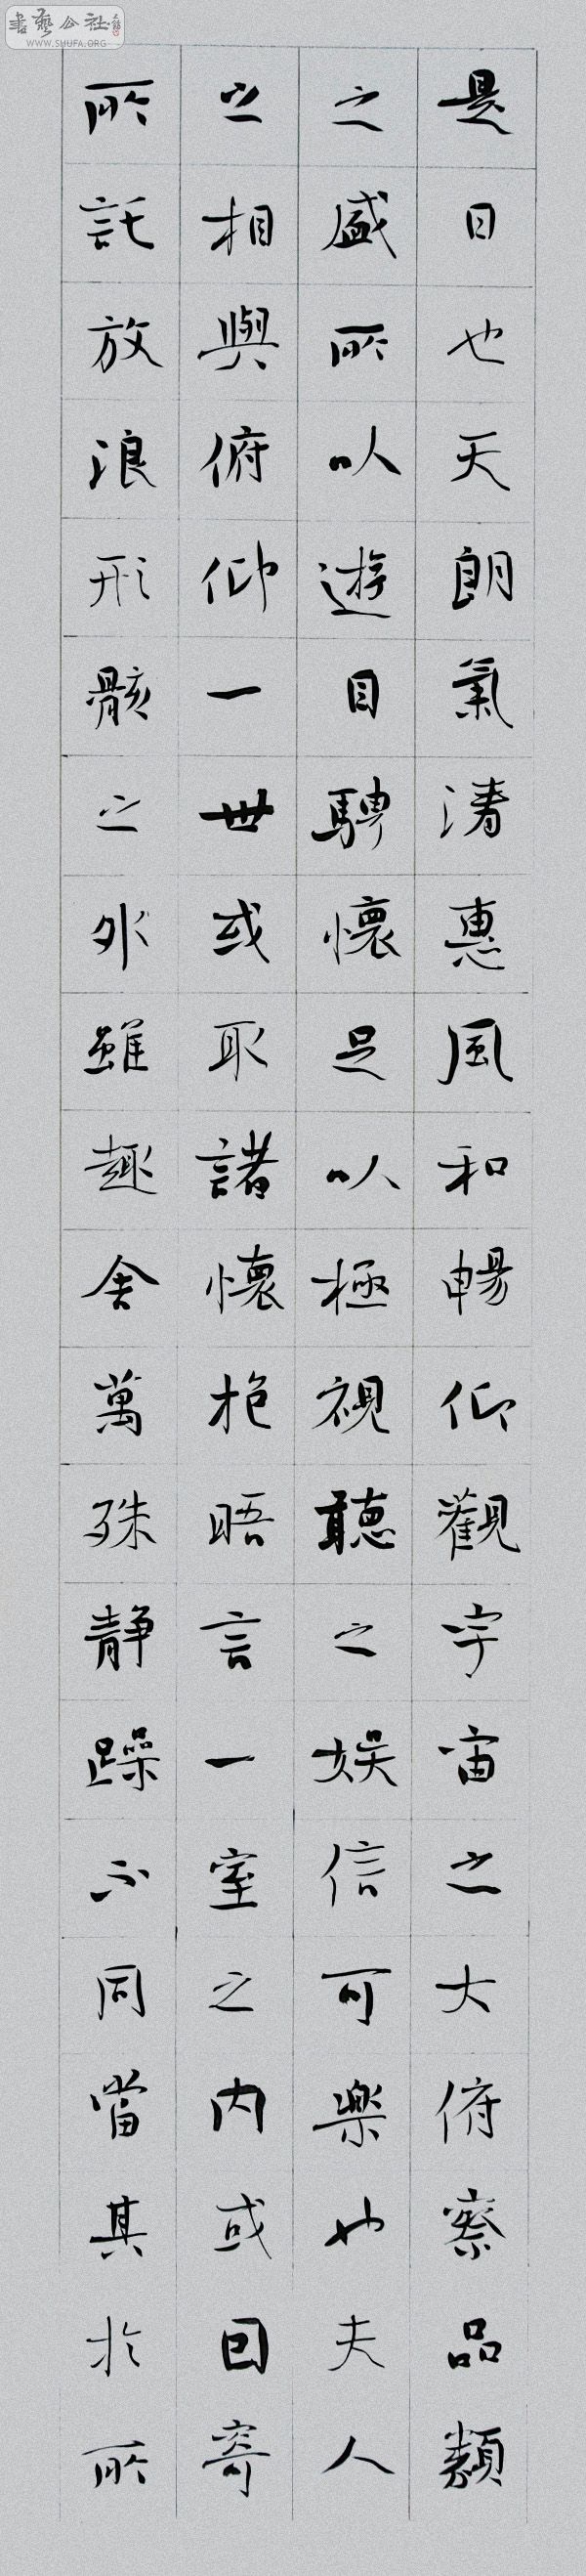 書藝公社
WWW.SHUFA.ORG
是日也天朗氣清惠風和暢仰觀宇宙之大俯察品類
之盛所以遊目騁懷足以極視聽之娛信可樂也夫人
之相與俯仰一世或取諸懷抱晤言一室之内或因寄
所託放浪形骸之外雖趣舍萬殊静躁不同當其於所